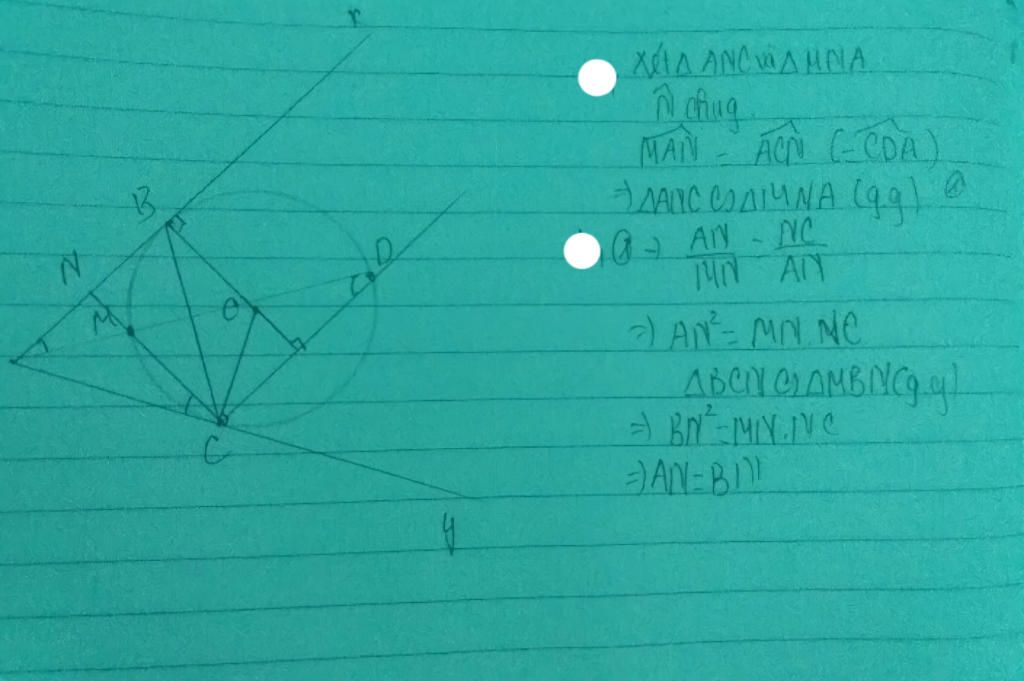 r
B
N
D
M
O
C
y
Xét Δ ANC và Δ MNA
N̂ chug
MAN̂ = ACN̂ (=CDÂ)
=> ΔANC ∽ ΔMNA (g.g) ⊛
⊛ => AN/MN = NC/AN
=> AN² = MN.NC
ΔBCN ∽ ΔMBN(g.g)
=> BN² = MN.NC
=> AN = BN